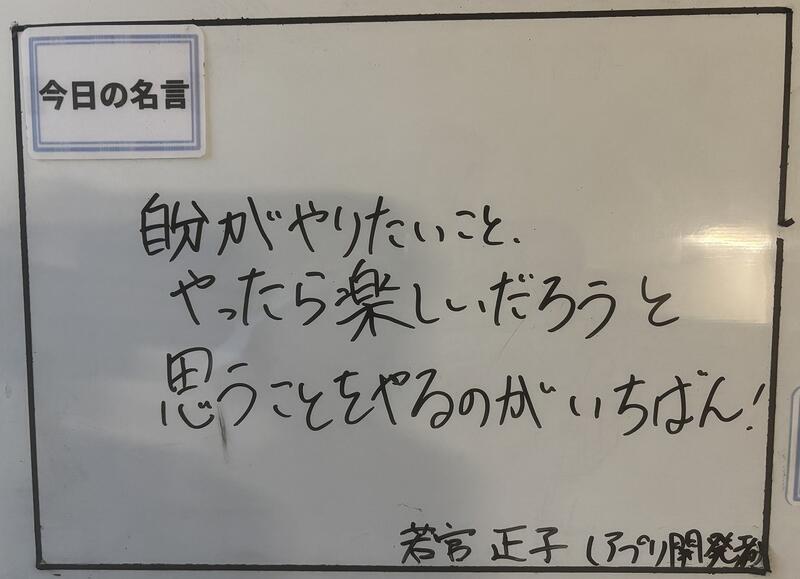 今日の名言
自分がやりたいこと、
やったら楽しいだろうと
思うことをやるのがいちばん!
若宮 正子 (アプリ開発者